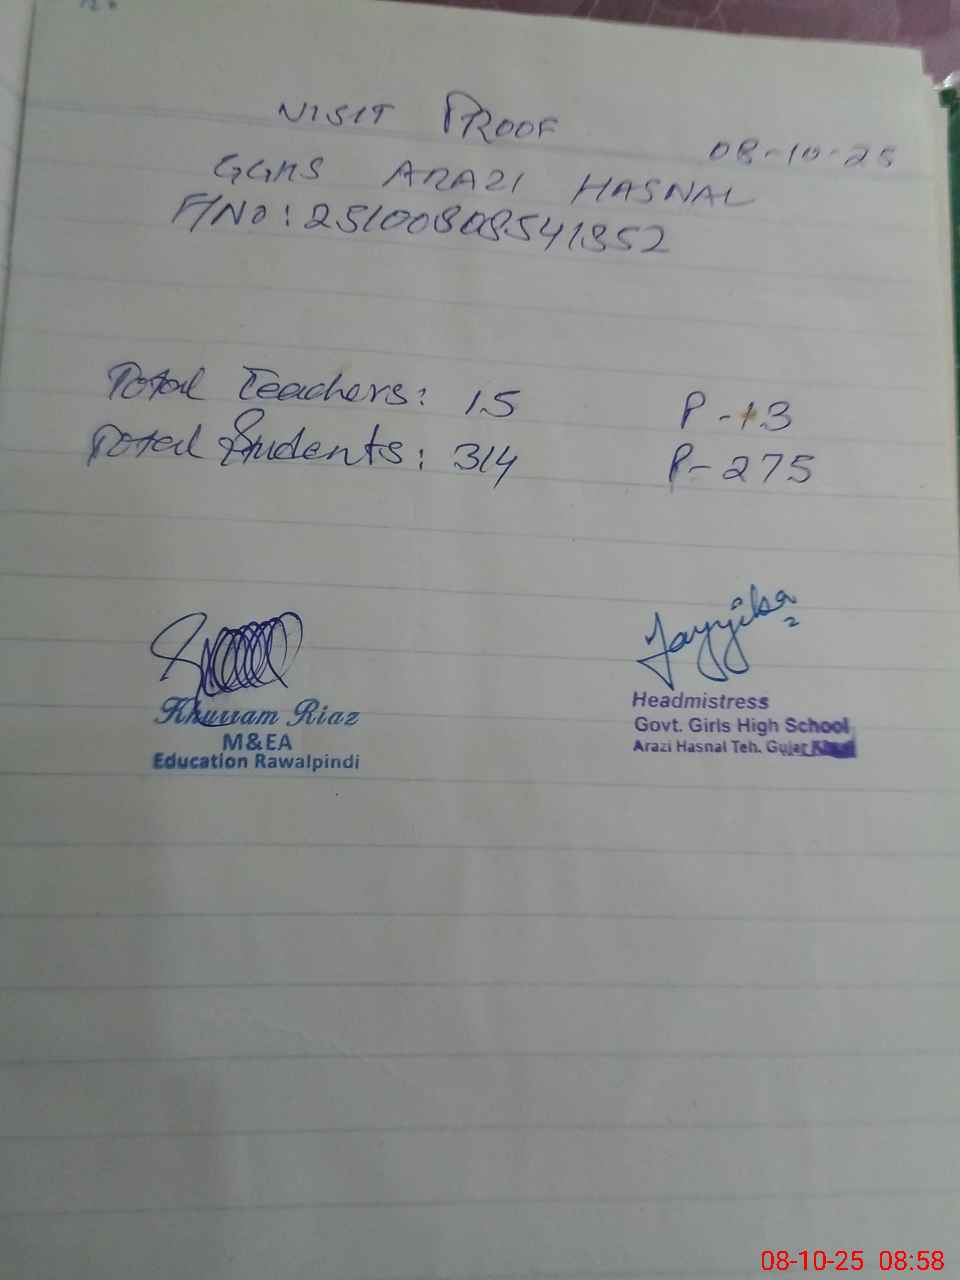 VISIT PROOF
08-10-25
GGHS ARAZI HASNAL
F/No: 25100808541352
Total Teachers: 15 P-13
Total Students: 314 P-275
Khurram Riaz
M&EA
Education Rawalpindi
Headmistress
Govt. Girls High School
Arazi Hasnal Teh. Gujar
08-10-25 08:58